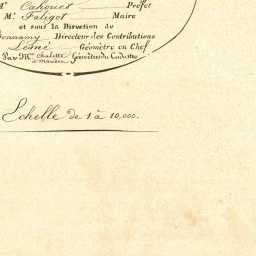 Mr Cahouet Préfet
Mr Faligot Maire
et sous la Direction de
Bonnamy Directeur des Contributions
Lesné Géomètre en Chef
Par MM. Chalette Géomètres du Cadastre
Echelle de 1 à 10,000.